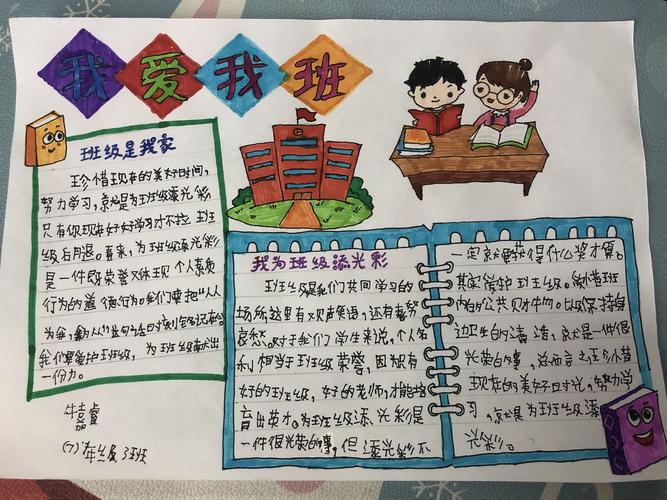 我爱我班
班级是我家
珍惜现在的美好时间,
努力学习,就是为班级添光彩
只有你现在好好学习才不拉班
级后腿。看来,为班级添光彩
是一件既荣誉又体现个人素质
行为的道德行为。我们要把“人人
为我,我为人人”这句话时刻牢记
我们要爱护班级,为班级献出
一份力。
牛嘉睿
(7)年级3班
我为班级添光彩
班级是我们共同学习的
场所这里有欢声笑语,还有喜怒
哀愁。对于我们学生来说,个人名
利相当于班级荣誉,因为只有
好的班级,好的老师,才能培
育出英才。为班级添光彩是
一件很光荣的事,但添光彩不
一定就要获得什么奖才算。
其实爱护班级。爱惜班
内的公共财物。以级保持自身
边卫生的清洁,就是一件很
光荣的事,总而言之珍惜
现在的美好时光,努力学
习,就是为班班级添
光彩。